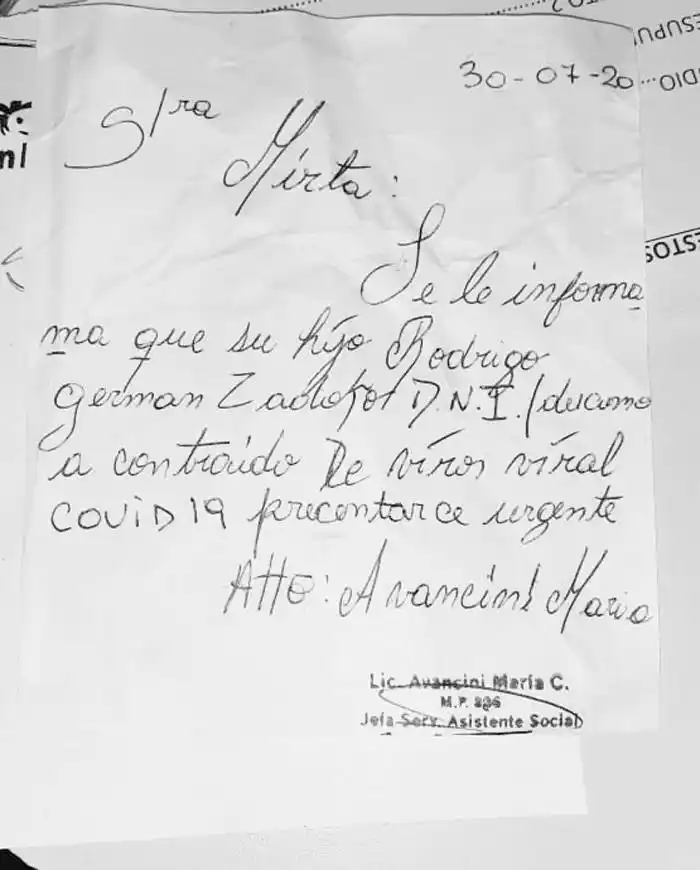 30-07-20
S/ra
Mirta:
Se le informa
ma que su hijo Rodrigo
German D.N.I.
a contraido De viros viral
COVID 19 precentarce urgente
Atto: Avancini Maria
Lic. Avancini María C.
M.P. 896
Jefa Serv. Asistente Social